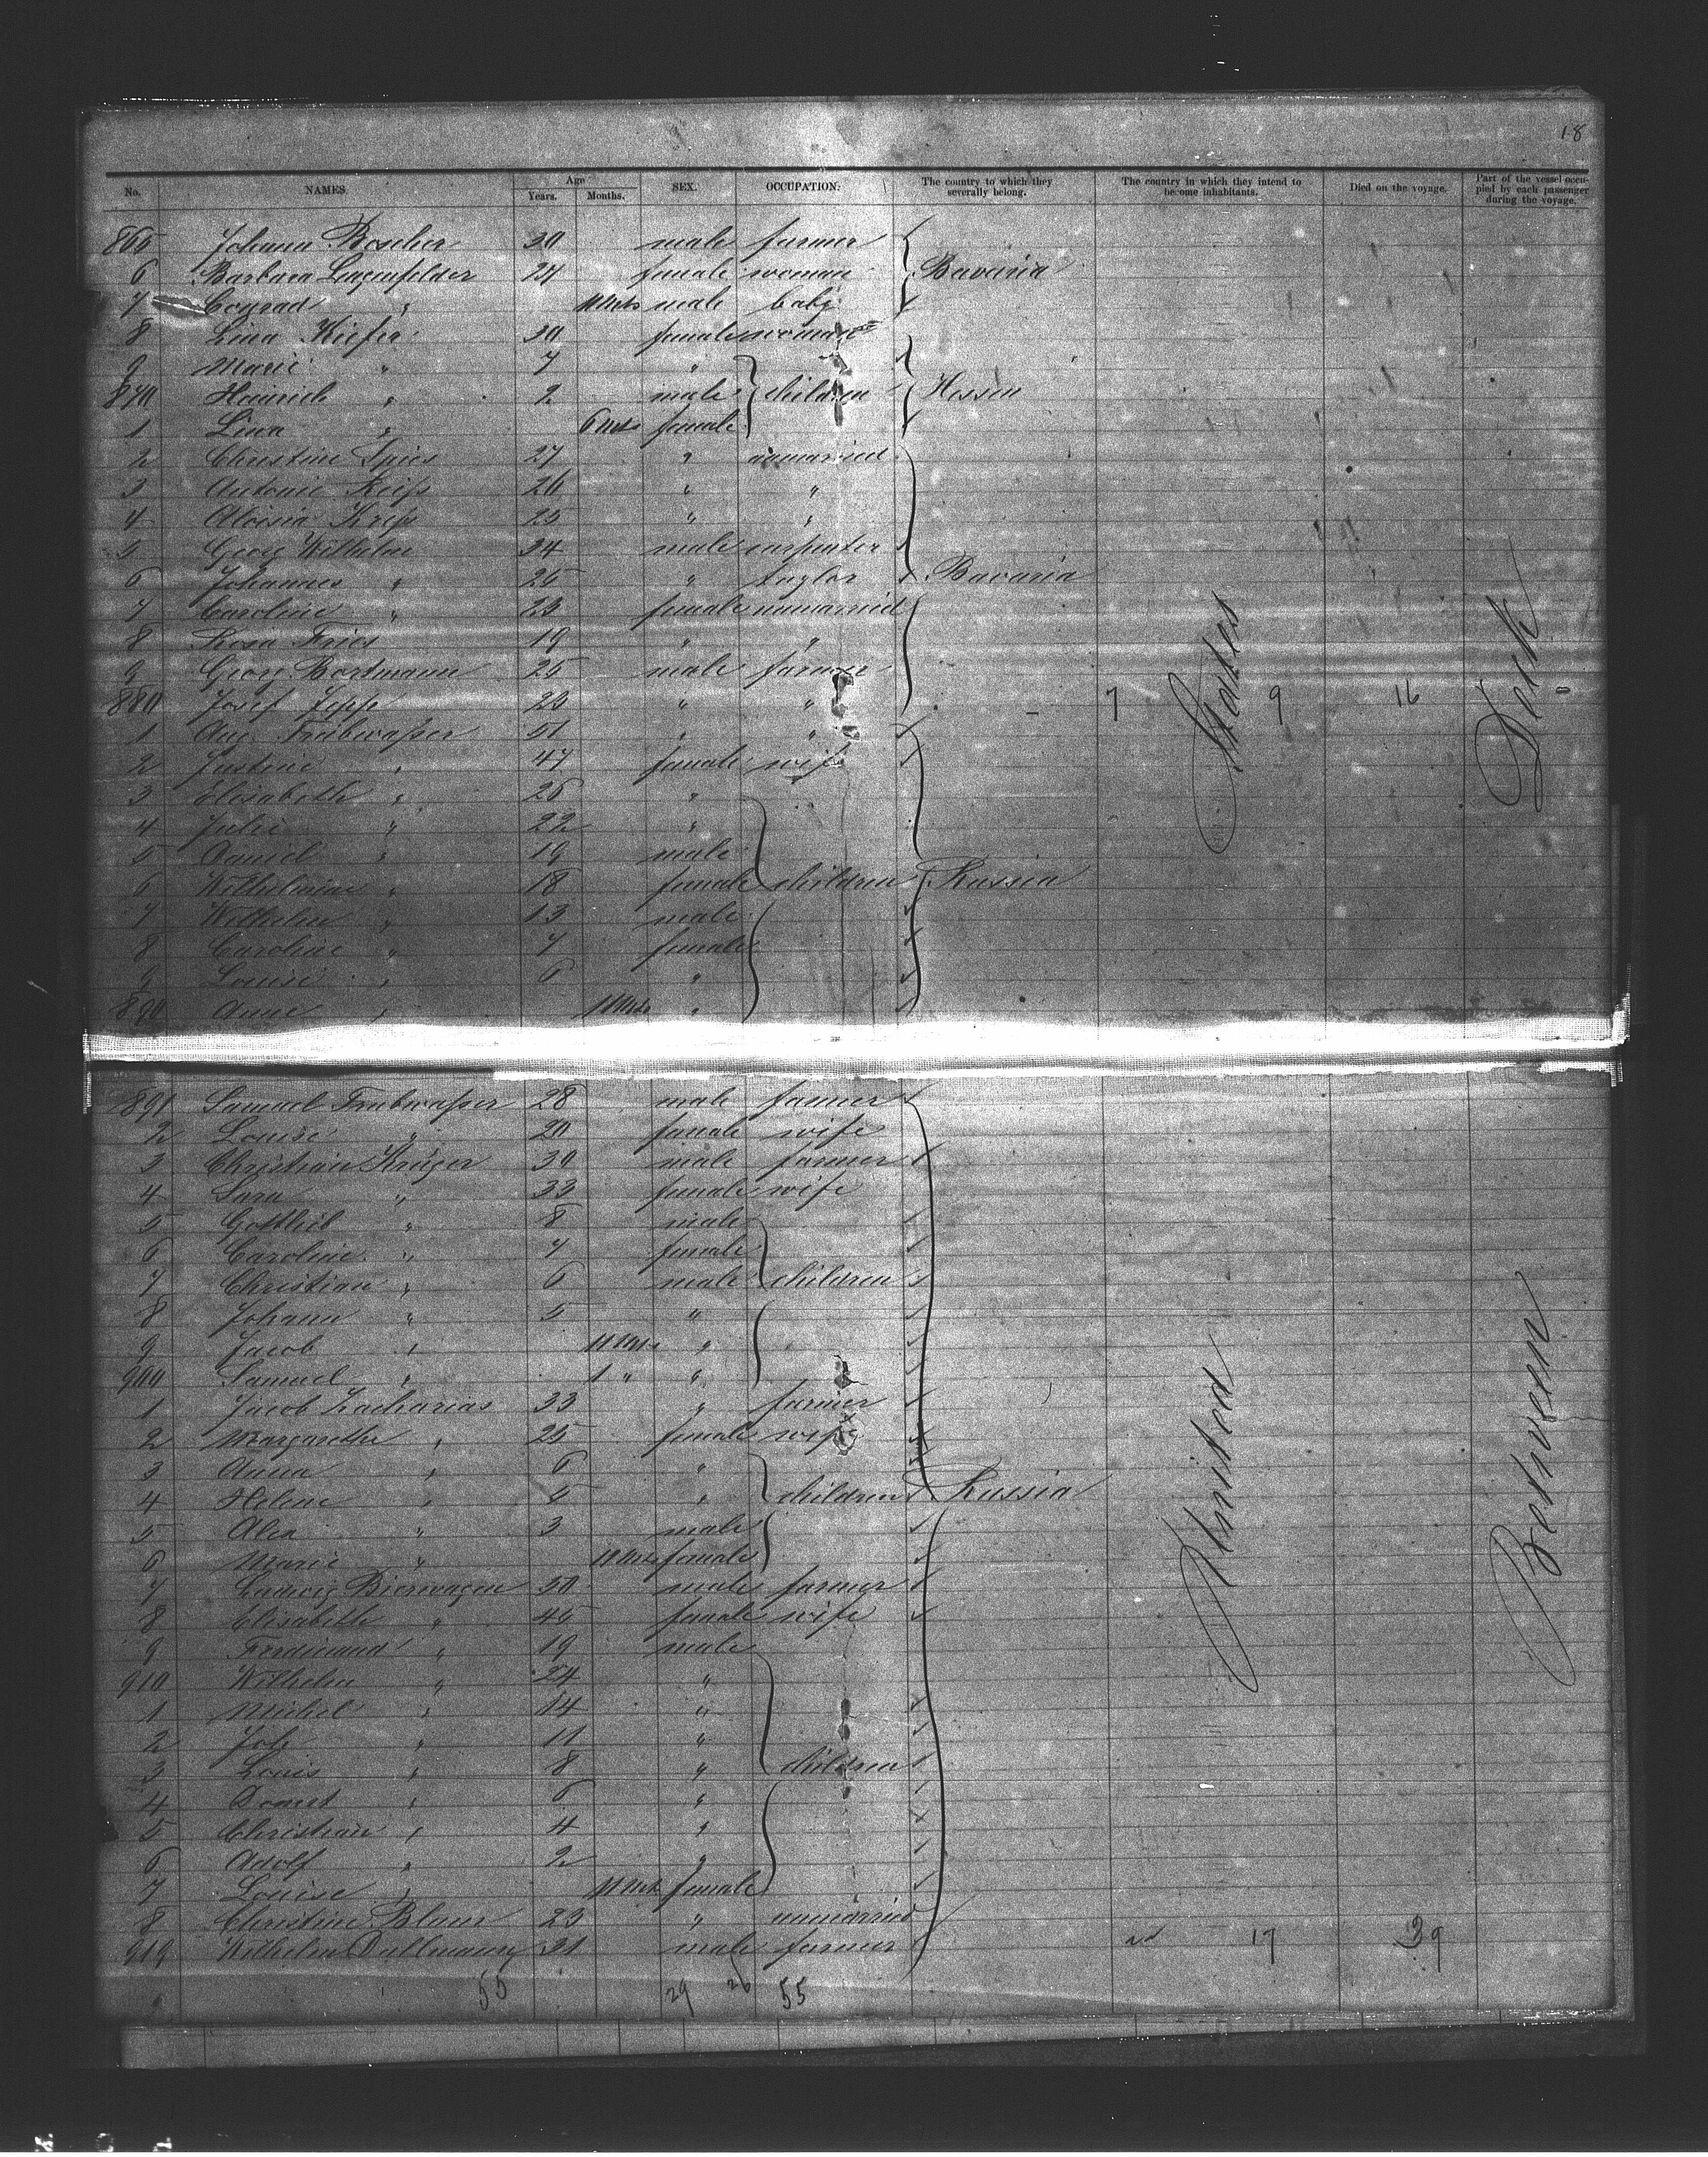 18
No. NAMES. Age Years. Months. SEX. OCCUPATION. The country to which they severally belong. The country in which they intend to become inhabitants. Died on the voyage. Part of the vessel occupied by each passenger during the voyage.
865 Johann Boscher 30 male farmer
6 Barbara 24 female woman Bavaria
7 Conrad " 11 Mts male baby
8 Lina Kiefer 30 female woman
9 Marie " 7 "
870 Heinrich " 2 male children Hessen
1 Lina " 6 Mts female
2 Christine Spies 27 " unmarried
3 Antonie 26 " "
4 Aloisia 25 " "
5 Georg Wilhelm 34 male carpenter
6 Johannes " 25 " taylor Bavaria
7 Caroline " 23 female unmarried
8 Rosa Fries 19 " "
9 Georg Bortmann 25 male farmer
880 Josef 23 " "
1 Aug. Trubwasser 51 " "
2 Justine " 47 female wife
3 Elisabeth " 26 "
4 Julie " 22 "
5 Daniel " 19 male
6 Wilhelmine " 18 female children Russia
7 Wilhelm " 13 male
8 Caroline " 7 female
9 Louise " 6 "
890 Anna " 11 Mts "
7 9 16
States
Deck
891 Samuel Trubwasser 28 male farmer
2 Louise " 20 female wife
3 Christian Krüger 39 male farmer
4 Sara " 33 female wife
5 Gottlieb " 8 male
6 Caroline " 7 female
7 Christian " 6 male children
8 Johann " 5 "
9 Jacob " 11 Mts "
900 Samuel " 1 " "
1 Jacob Zacharias 33 " farmer
2 Margarethe " 25 female wife
3 Anna " 6 "
4 Helene " 5 " children Russia
5 " 3 male
6 Marie " Mts female
7 Ludwig Bierwagen 50 male farmer
8 Elisabeth " 45 female wife
9 Ferdinand " 19 male
910 Wilhelm " 24 "
1 Michel " 14 "
2 Job " 11 "
3 Louis " 8 " children
4 " 6 "
5 Christian " 4 "
6 Adolf " 2 "
7 Louise " 11 Mts female
8 Christine Blum 23 " unmarried
919 Wilhelm Dallmann 31 male farmer
17 39
United
Between
55 29 26 55